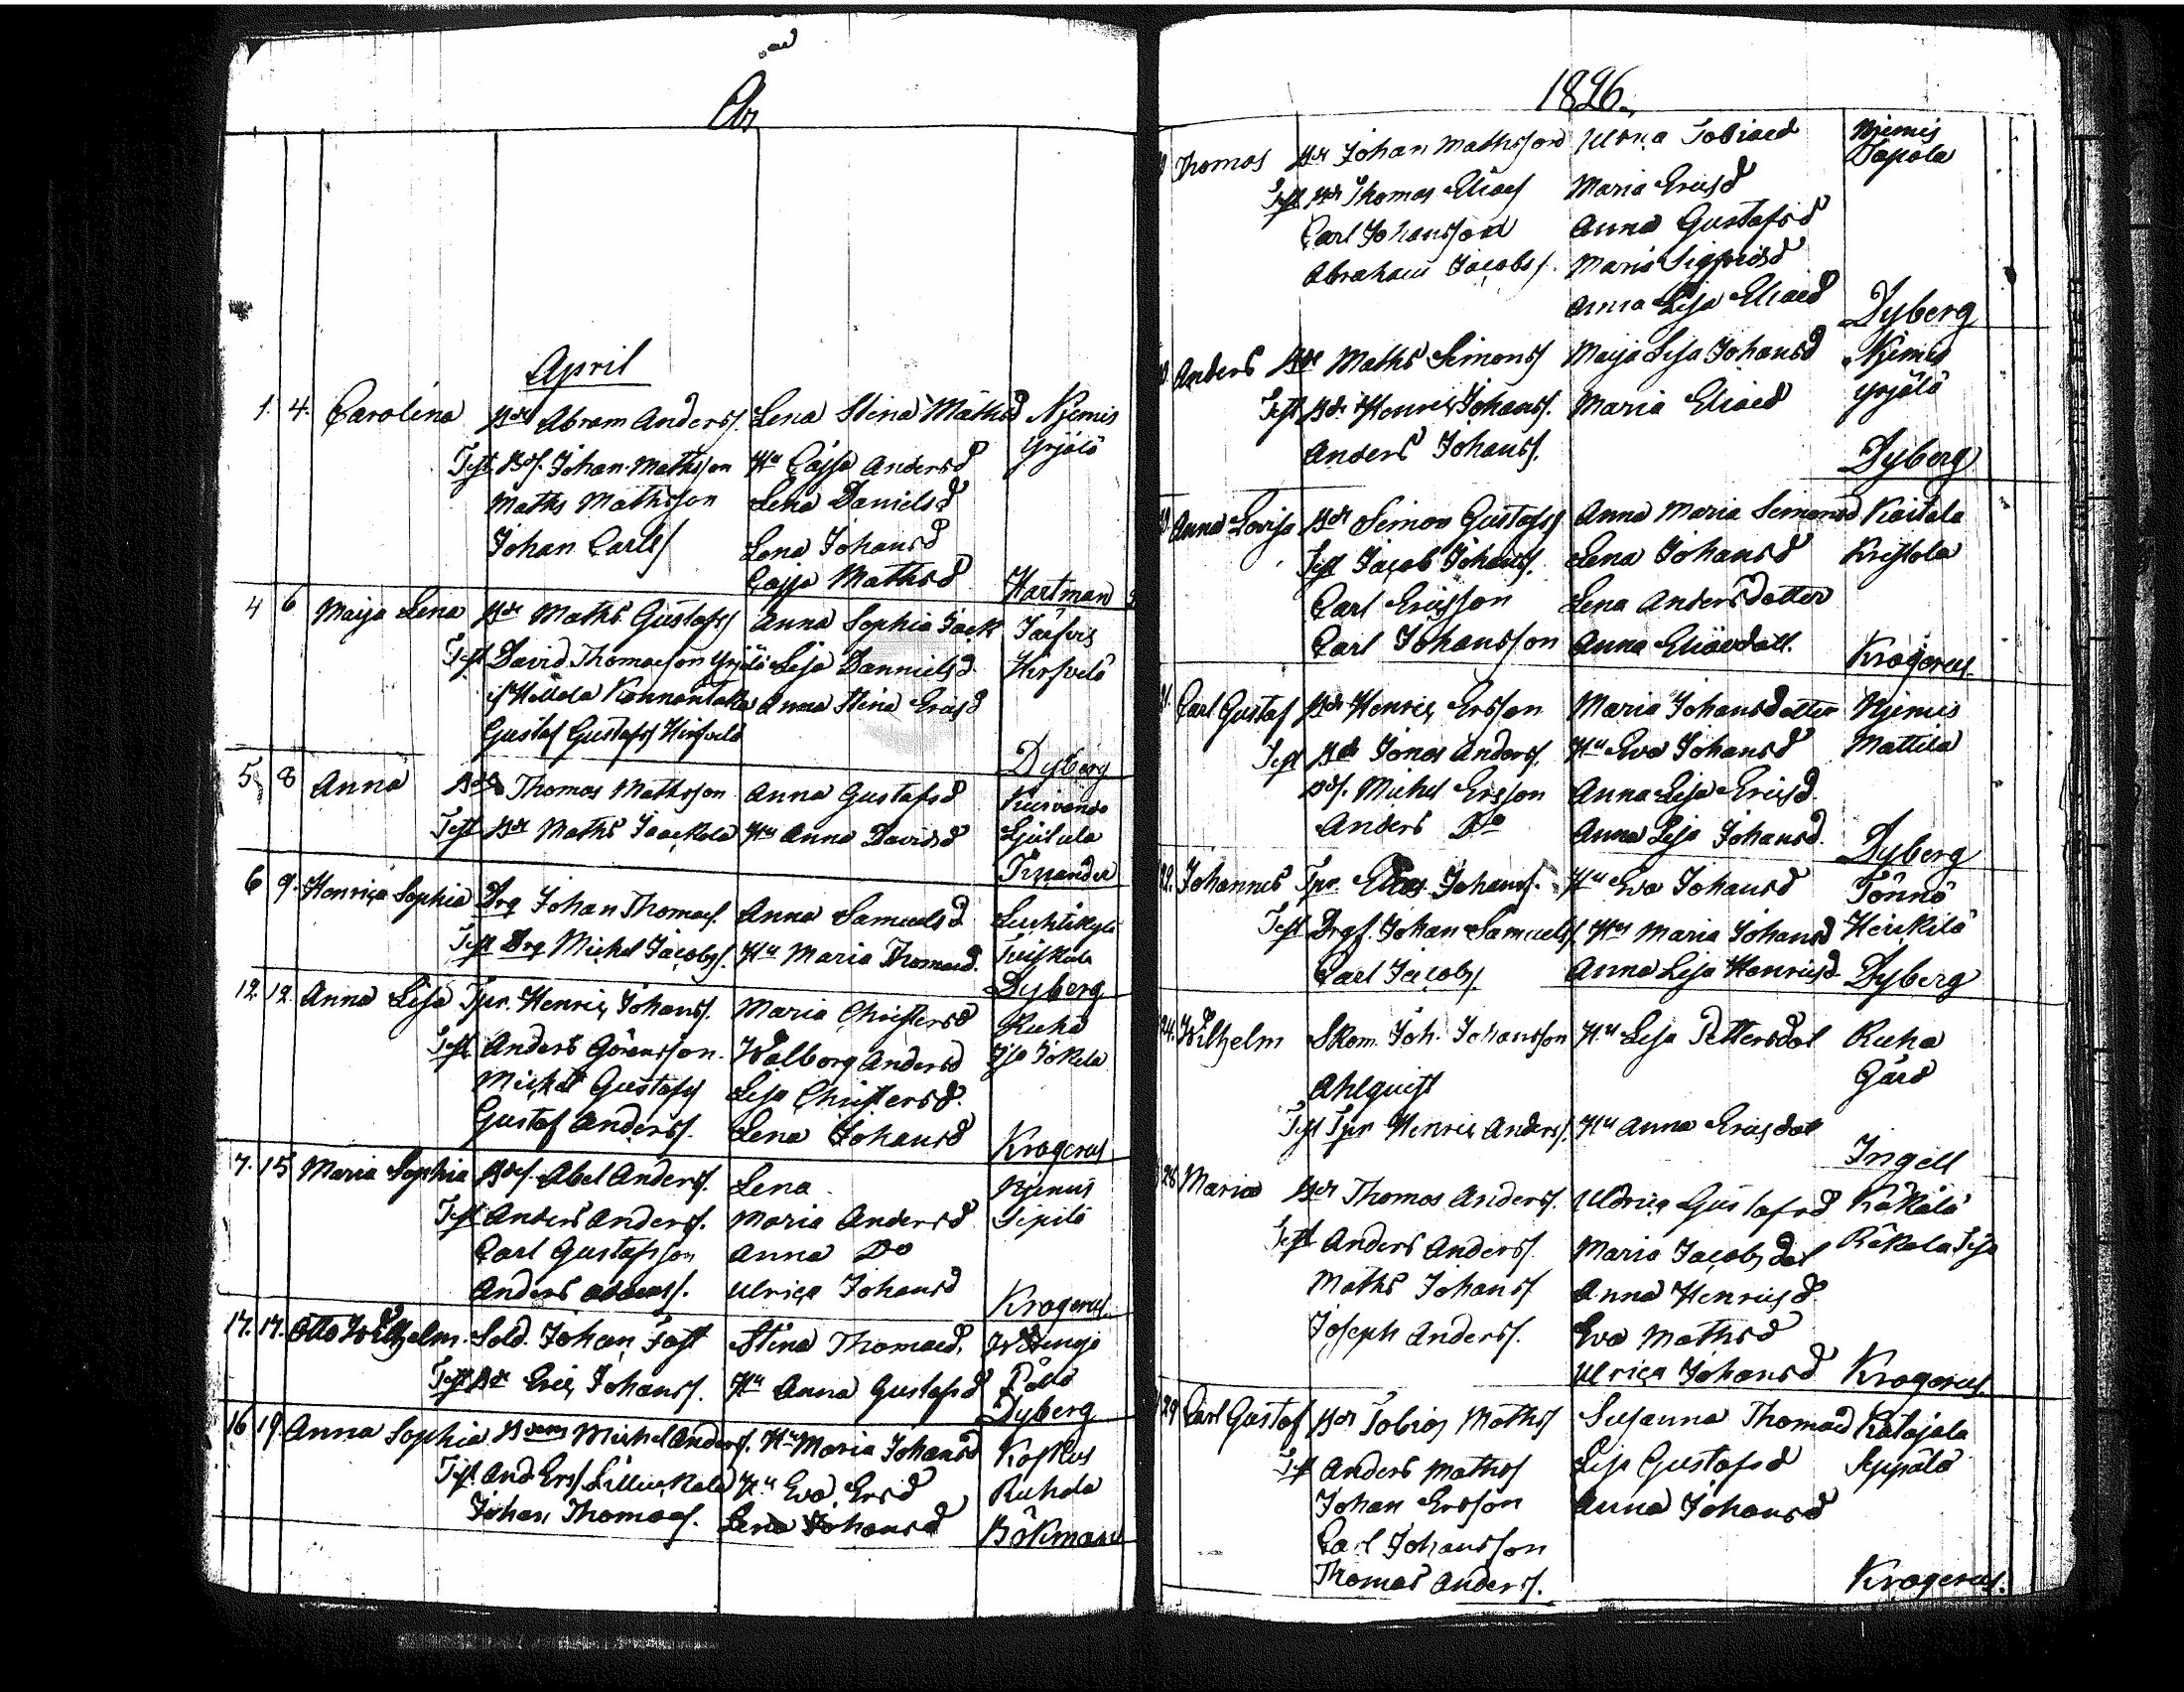 År
April
1. 4. Carolina Bdr Abram Anderss. Lena Stina Mathsd Njemis
Yrjölä
Test. Bds. Johan Mathsson Hu Cajsa Andersd
Maths Mathsson Lena Danielsd
Johan Carlss Lena Johansd
Cajsa Mathsd
Hartman
4 6 Maija Lena Bdr Maths Gustafss Anna Sophia Jack
Test David Thomasson Yrjölä Lisa Dannielsd Hirfvelä
Anna Stina Ericsd
Gustaf Gustafss Hirfvelä
Dyberg
5 8 Anna Thomas Mathsson Anna Gustafsd
Test Bdr Maths Jaackola Hu Anna Davidsd
6 9. Henrica Sophia Drg Johan Thomass. Anna Samuelsd
Test Drg Michel Jacobss. Hu Maria Thomasd.
Dyberg
12. 12 Anna Lisa Tpr. Henric Johanss. Maria Christersd Ruha
Test Anders Göransson. Walborg Andersd Iso Jokela
Michel Gustafss Lisa Christersd.
Gustaf Anderss. Lena Johansd
Krogerus
7. 15 Maria Sophia Bds. Abel Anderss. Lena Njemis
Test Anders Anderss. Maria Andersd Sipilä
Carl Gustafsson Anna Do
Anders Ulrica Johansd
Krogerus
17. 17. Otto Wilhelm. Sold. Johan Fast Stina Thomasd.
Test Bdr Eric Johanss. Hu Anna Gustafsd
Dyberg
16 19. Anna Sophia Michel Anderss. Hu Maria Johansd Koskus
Test And Erss Hu Eva Ersd Ruhala
Johan Thomass. Lena Johansd
Bökman
1826.
Thomas Bdr Johan Mathsson Ulrica Tobiaed Njemis
Tapola
Test Bdr Thomas Eliaes Maria Ericsd
Carl Johansson Anna Gustafsd
Abraham Jacobss. Maria Sigfridsd
Anna Lisa Eliaed
Dyberg
Anders Bdr Maths Simonss Maija Lisa Johansd Njemis
Yrjölä
Test Bdr Henric Johanss. Maria Eliaed
Anders Johanss.
Dyberg
Anna Lovisa Bdr Simon Gustafss Anna Maria Simonsd Kaitala
Test Jacob Johanss. Lena Johansd Kristola
Carl Ericsson Lena Andersdotter
Carl Johansson Anna Eliaedott.
Krogerus.
Carl Gustaf Bdr Henric Ersson Maria Johansdotter Njemis
Test Bdr Jonas Anderss. Hu Eva Johansd Mattila
Bds. Michel Ersson Anna Lisa Ericsd.
Anders Do Anna Lisa Johansd.
Dyberg
22. Johannes Tpr. Elias Johanss. Hu Eva Johansd Tönnö
Test Drgs. Johan Samuelss. Hu Maria Johansd Heickilä
Carl Jacobs. Anna Lisa Henricsd. Dyberg
24. Wilhelm Skom. Joh. Johansson Hu Lisa Pettersdot Ruha
Ahlquist Gård
Test Tpr Henric Anderss. Hu Anna Ericsdot
Ingell
28 Maria Bdr Thomas Anderss. Uldrica Gustafsd Kåkälä
Test Anders Anderss. Maria Jacobsdot
Maths Johanss Anna Henricsd.
Joseph Anderss. Eva Mathsd
Ulrica Johansd Krogerus
29 Carl Gustaf Bdr Tobias Mathss Susanna Thomasd Katajala
Test Anders Mathss Lisa Gustafsd Seppälä
Johan Ersson Anna Johansd
Carl Johansson
Thomas Anderss.
Krogerus.